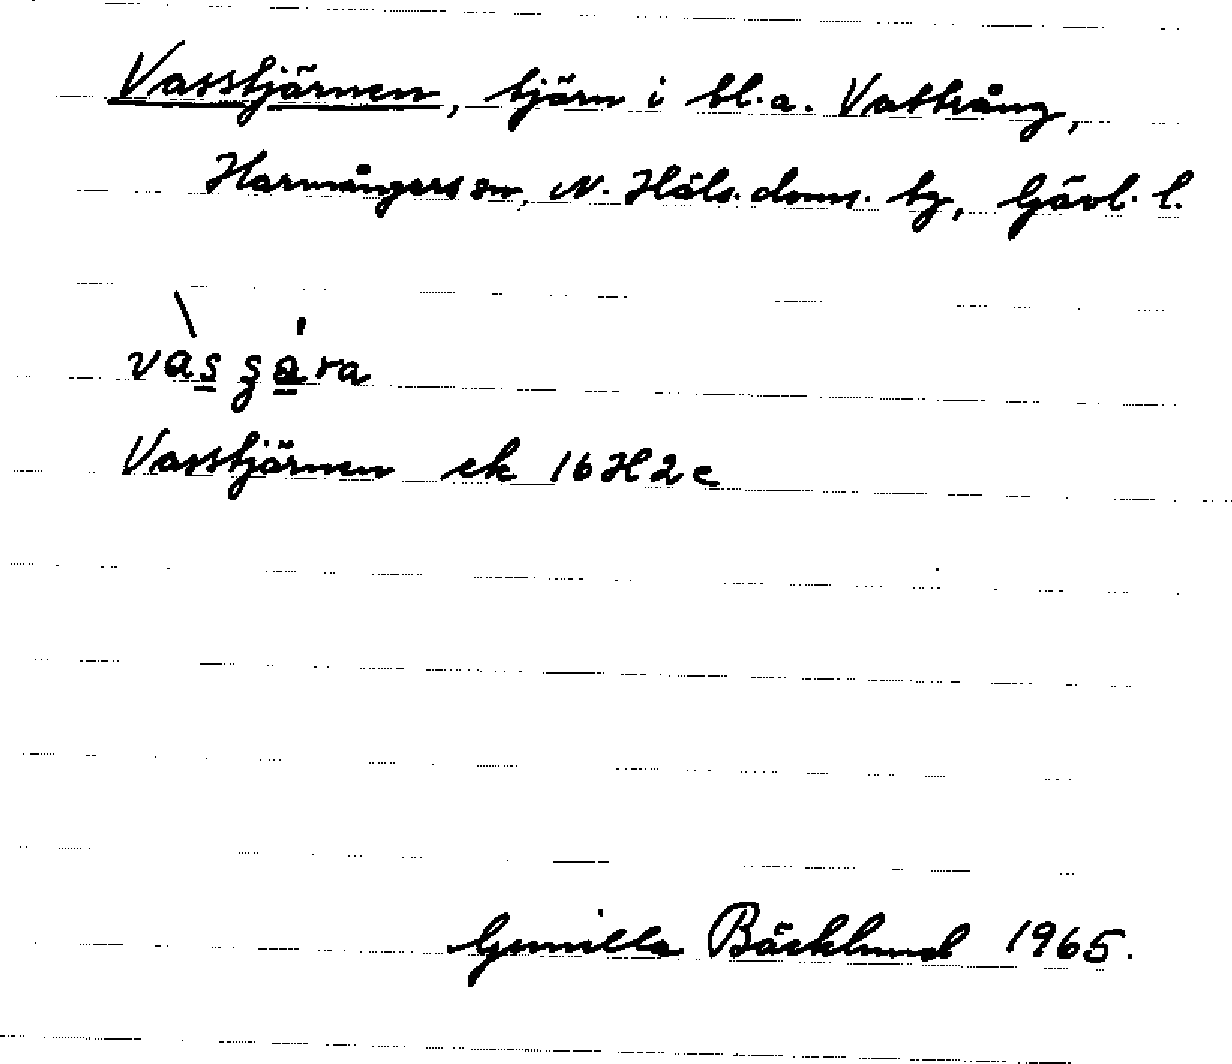 Vasstjärnen, tjärn i bl.a. Vattrång,
Harmångers sn, N. Häls. doms. tg, Gävl. l.
Vasstjärnen ek 16H2c
Gunilla Bäcklund 1965.